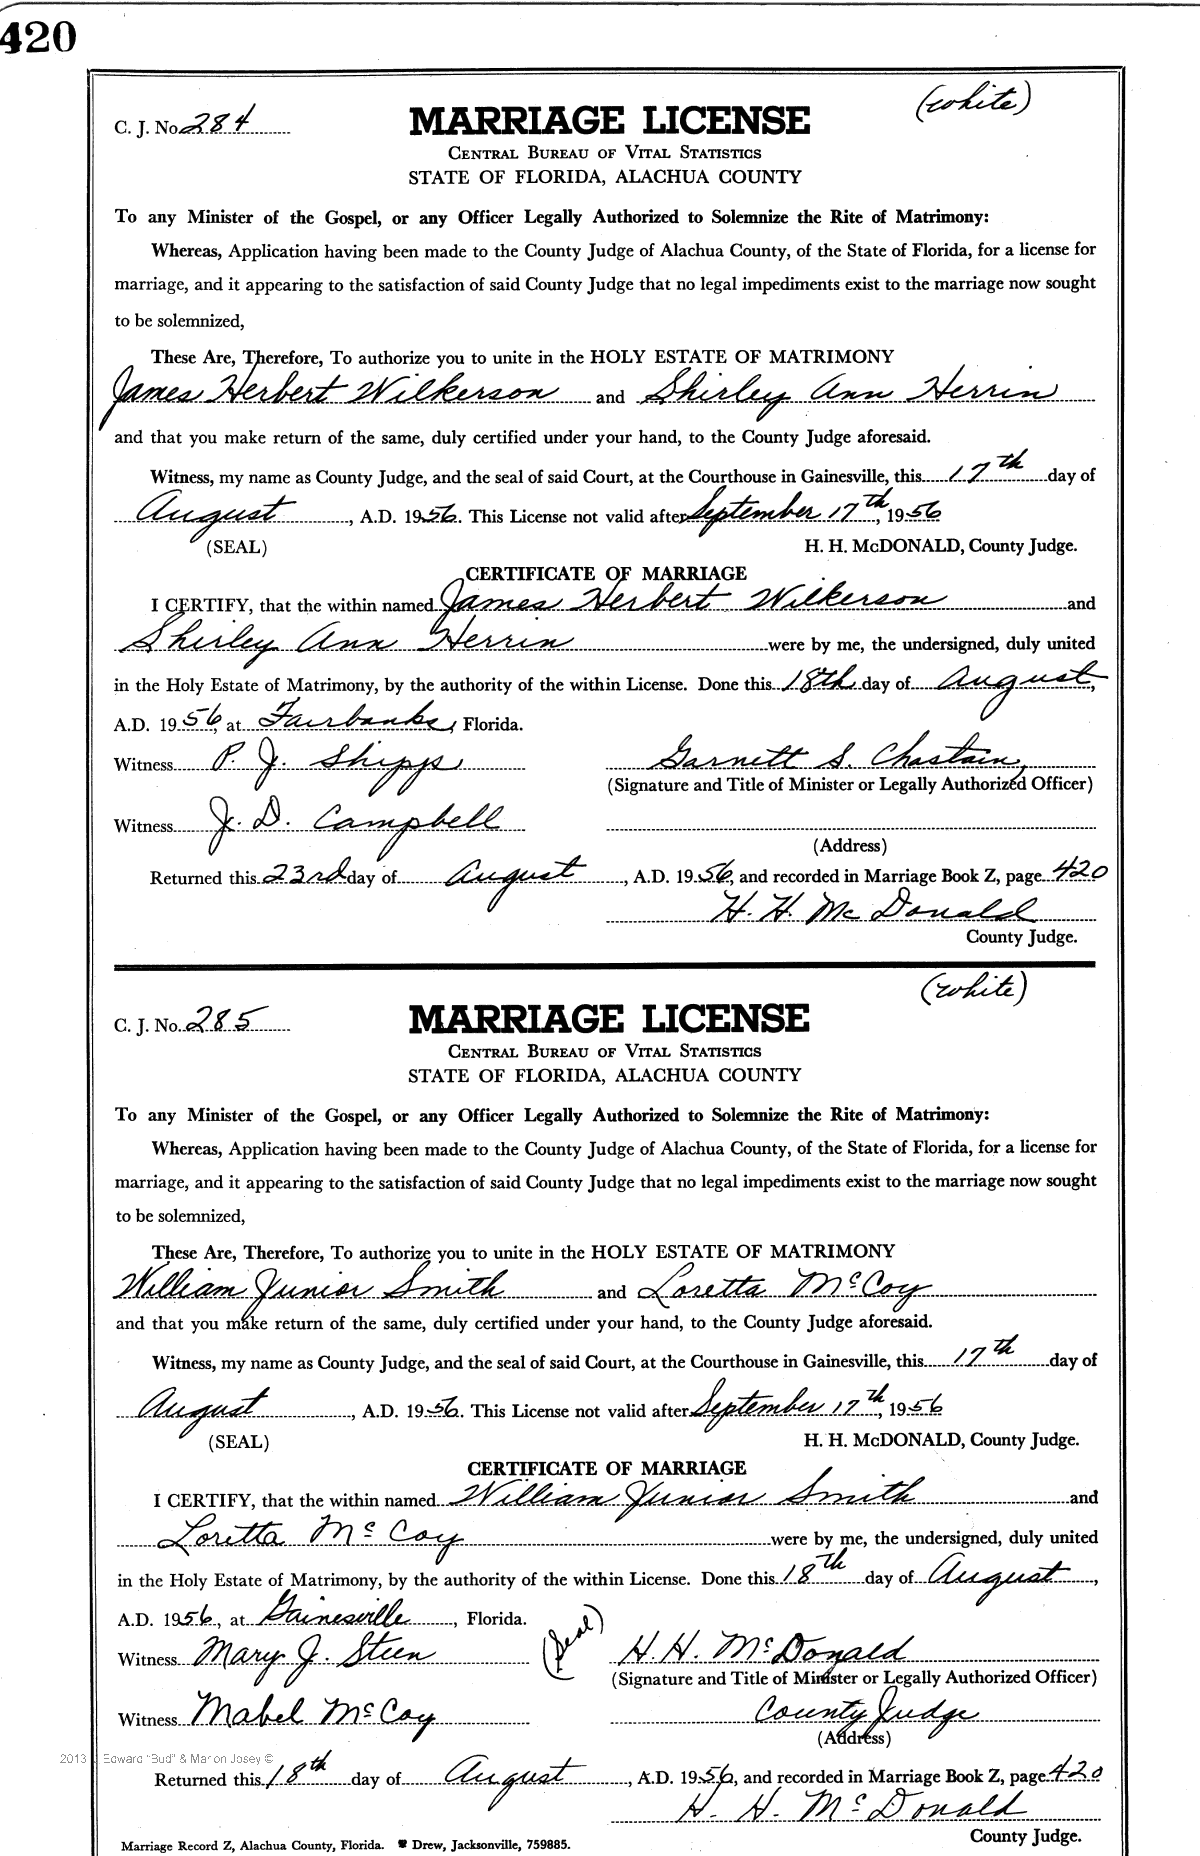 420
(white)
C. J. No. 284
MARRIAGE LICENSE
CENTRAL BUREAU OF VITAL STATISTICS
STATE OF FLORIDA, ALACHUA COUNTY
To any Minister of the Gospel, or any Officer Legally Authorized to Solemnize the Rite of Matrimony:
Whereas, Application having been made to the County Judge of Alachua County, of the State of Florida, for a license for
marriage, and it appearing to the satisfaction of said County Judge that no legal impediments exist to the marriage now sought
to be solemnized,
These Are, Therefore, To authorize you to unite in the HOLY ESTATE OF MATRIMONY
James Herbert Wilkerson and Shirley Ann Herrin
and that you make return of the same, duly certified under your hand, to the County Judge aforesaid.
Witness, my name as County Judge, and the seal of said Court, at the Courthouse in Gainesville, this 17th day of
August, A.D. 1956. This License not valid after September 17th, 1956
(SEAL) H. H. McDONALD, County Judge.
CERTIFICATE OF MARRIAGE
I CERTIFY, that the within named James Herbert Wilkerson and
Shirley Ann Herrin were by me, the undersigned, duly united
in the Holy Estate of Matrimony, by the authority of the within License. Done this 18th day of August,
A.D. 1956, at Fairbanks, Florida.
Witness P. J. Shipps Garnett S. Chastain,
(Signature and Title of Minister or Legally Authorized Officer)
Witness J. D. Campbell
(Address)
Returned this 23rd day of August, A.D. 1956, and recorded in Marriage Book Z, page 420
H. H. McDonald
County Judge.
(white)
C. J. No. 285
MARRIAGE LICENSE
CENTRAL BUREAU OF VITAL STATISTICS
STATE OF FLORIDA, ALACHUA COUNTY
To any Minister of the Gospel, or any Officer Legally Authorized to Solemnize the Rite of Matrimony:
Whereas, Application having been made to the County Judge of Alachua County, of the State of Florida, for a license for
marriage, and it appearing to the satisfaction of said County Judge that no legal impediments exist to the marriage now sought
to be solemnized,
These Are, Therefore, To authorize you to unite in the HOLY ESTATE OF MATRIMONY
William Junior Smith and Loretta McCoy
and that you make return of the same, duly certified under your hand, to the County Judge aforesaid.
Witness, my name as County Judge, and the seal of said Court, at the Courthouse in Gainesville, this 17th day of
August, A.D. 1956. This License not valid after September 17th, 1956
(SEAL) H. H. McDONALD, County Judge.
CERTIFICATE OF MARRIAGE
I CERTIFY, that the within named William Junior Smith and
Loretta McCoy were by me, the undersigned, duly united
in the Holy Estate of Matrimony, by the authority of the within License. Done this 18th day of August,
A.D. 1956, at Gainesville, Florida.
Witness Mary J. Steen (Seal) H. H. McDonald
(Signature and Title of Minister or Legally Authorized Officer)
Witness Mabel McCoy County Judge
(Address)
2013 Edward "Bud" & Marion Josey ©
Returned this 18th day of August, A.D. 1956, and recorded in Marriage Book Z, page 420
H. H. McDonald
County Judge.
Marriage Record Z, Alachua County, Florida. Drew, Jacksonville, 759885.